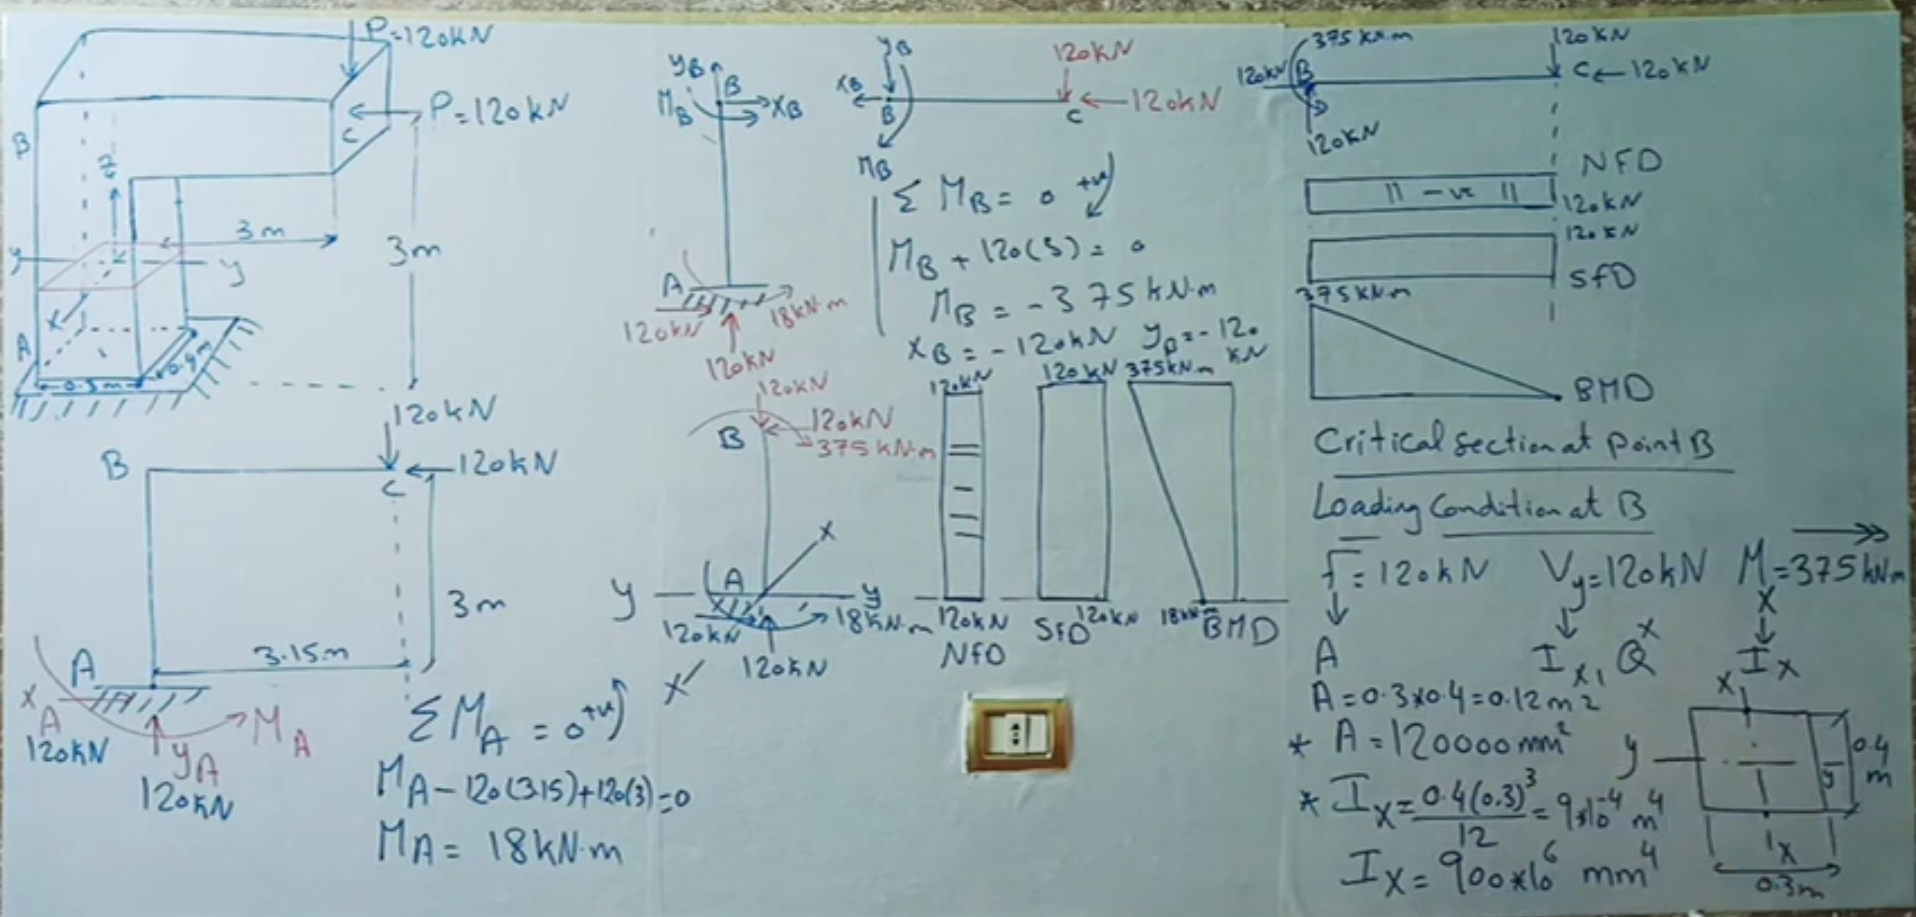 P=120kN
P=120kN
B
C
Z
3m
3m
y
y
X
A
0.3m
0.4m
120kN
B
120kN
C
3m
3.15m
A
XA
120kN
yA
120kN
MA
ΣMA = 0 +ve
MA - 120(3.15)+120(3)=0
MA = 18kN.m
yB
B
MB
XB
A
120kN
18kN.m
120kN
yB
120kN
XB
B
C
120kN
MB
Σ MB = 0 +ve
MB + 120(3) = 0
MB = - 375kN.m
XB = - 120kN yB = - 120
kN
120kN
B
120kN
375kN.m
X
A
y
y
120kN
18kN.m
120kN
X
120kN
120kN
NfD
120kN
SfD
120kN
375kN.m
18kN.m
BMD
375kN.m
120kN
120kN
B
C
120kN
120kN
NFD
-ve
120kN
120kN
SfD
375kN.m
BMD
Critical section at point B
Loading Condition at B
f = 120kN Vy = 120kN Mx = 375kN.m
A Ix, Qx Ix
A = 0.3x0.4 = 0.12m2
* A = 120000mm2
* Ix = 0.4(0.3)3/12 = 9x10-4 m4
Ix = 900*106 mm4
X
y
y
0.4
m
X
0.3m